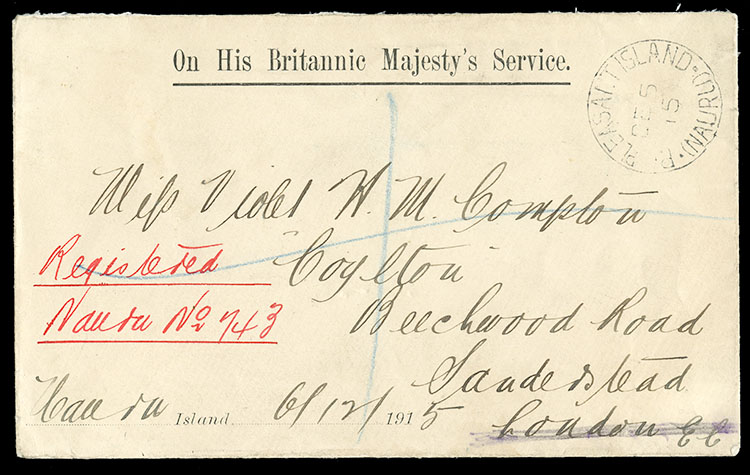 On His Britannic Majesty's Service.
PLEASANT ISLAND. (NAURU). P.
DE 5
15
Miss Violet H. M. Compton
"Coylton"
Registered
Nauru No 743
Beechwood Road
Sanderstead
Nauru Island. 6/12/1915
London EC